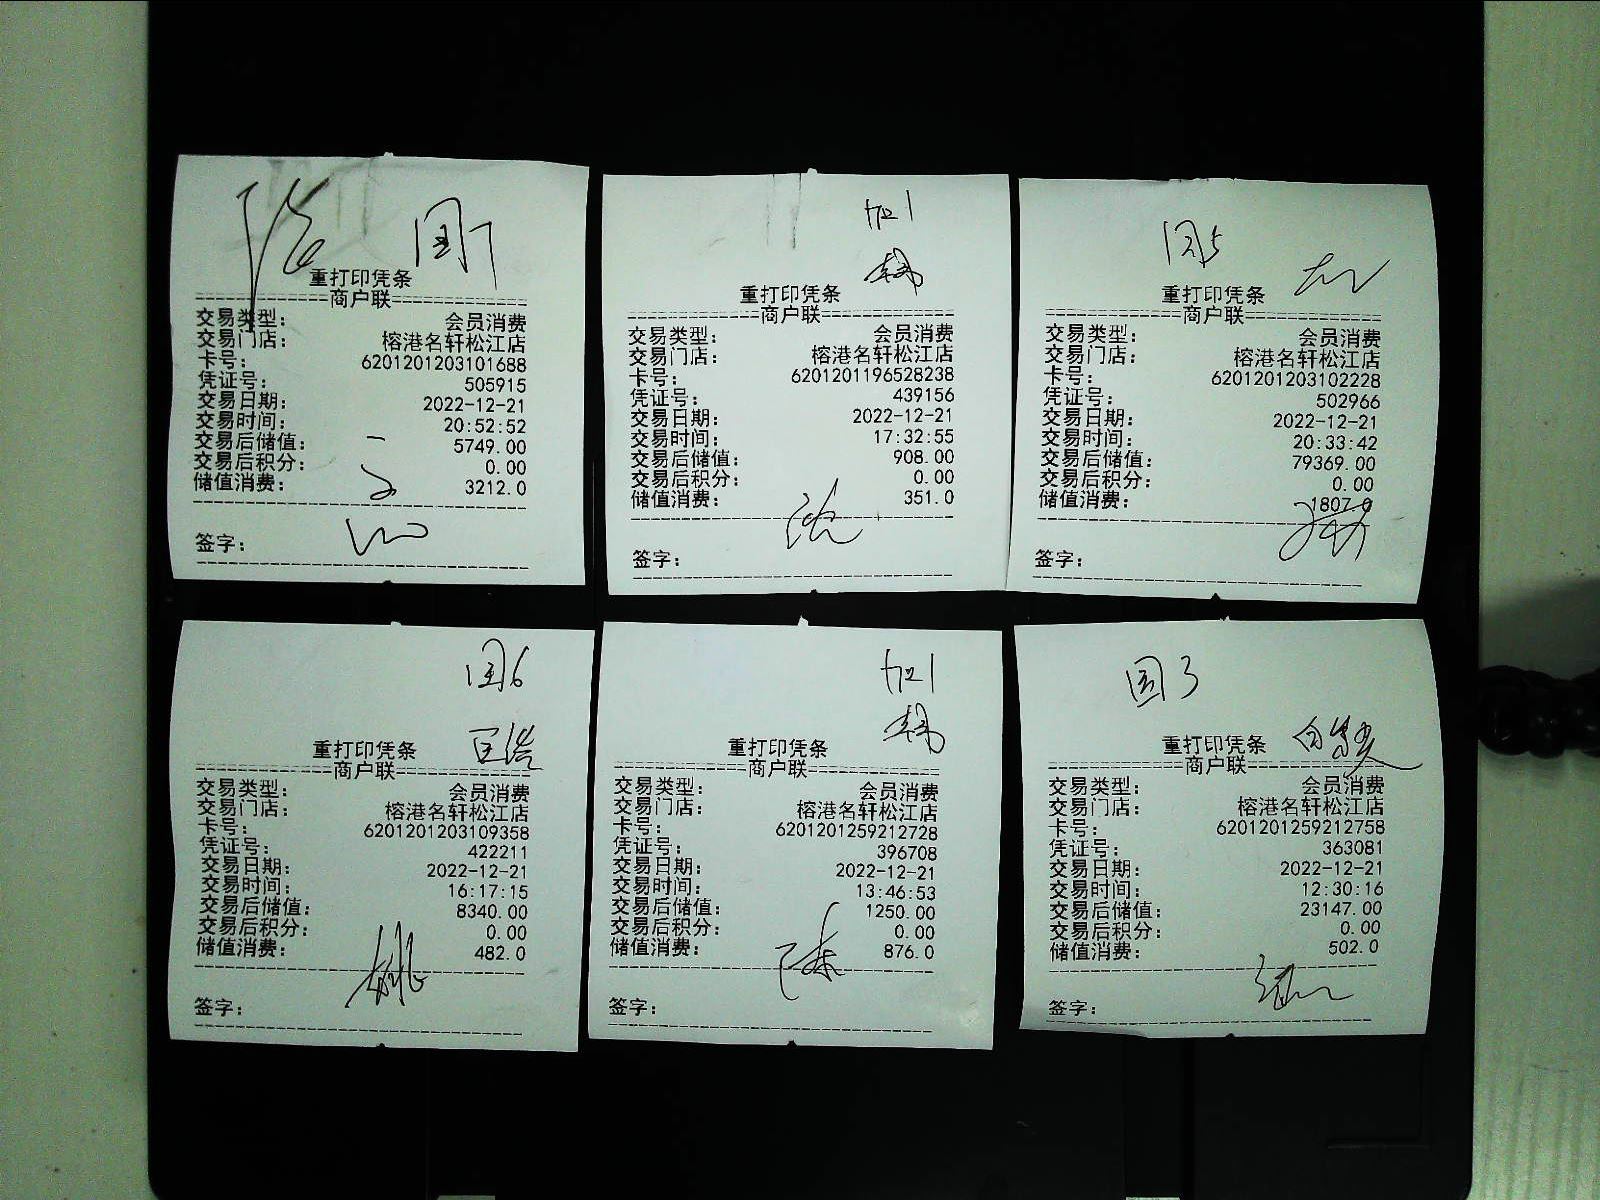 国7
重打印凭条
商户联
交易类型： 会员消费
交易门店： 榕港名轩松江店
卡号： 6201201203101688
凭证号： 505915
交易日期： 2022-12-21
交易时间： 20:52:52
交易后储值： 5749.00
交易后积分： 0.00
储值消费： 3212.0
签字：
重打印凭条
商户联
交易类型： 会员消费
交易门店： 榕港名轩松江店
卡号： 6201201196528238
凭证号： 439156
交易日期： 2022-12-21
交易时间： 17:32:55
交易后储值： 908.00
交易后积分： 0.00
储值消费： 351.0
沈
签字：
国5
重打印凭条
商户联
交易类型： 会员消费
交易门店： 榕港名轩松江店
卡号： 6201201203102228
凭证号： 502966
交易日期： 2022-12-21
交易时间： 20:33:42
交易后储值： 79369.00
交易后积分： 0.00
储值消费： 1807.0
签字：
国6
重打印凭条
商户联
交易类型： 会员消费
交易门店： 榕港名轩松江店
卡号： 6201201203109358
凭证号： 422211
交易日期： 2022-12-21
交易时间： 16:17:15
交易后储值： 8340.00
交易后积分： 0.00
储值消费： 482.0
姚
签字：
重打印凭条
商户联
交易类型： 会员消费
交易门店： 榕港名轩松江店
卡号： 6201201259212728
凭证号： 396708
交易日期： 2022-12-21
交易时间： 13:46:53
交易后储值： 1250.00
交易后积分： 0.00
储值消费： 876.0
陈
签字：
国3
重打印凭条
商户联
交易类型： 会员消费
交易门店： 榕港名轩松江店
卡号： 6201201259212758
凭证号： 363081
交易日期： 2022-12-21
交易时间： 12:30:16
交易后储值： 23147.00
交易后积分： 0.00
储值消费： 502.0
签字：